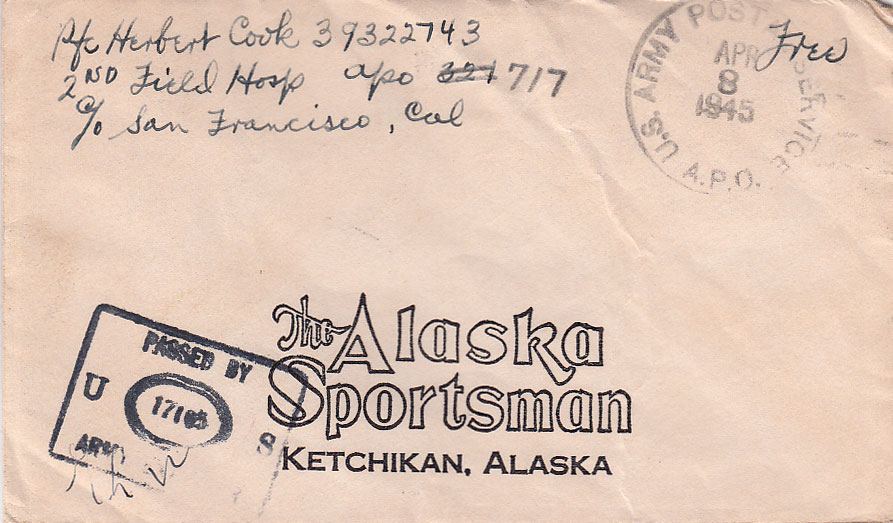 Pfc Herbert Cook 39322743
2ND Field Hosp apo 321 717
c/o San Francisco, Cal
Free
U.S. ARMY POSTAL SERVICE
APR
8
1945
A.P.O.
The Alaska
Sportsman
KETCHIKAN, ALASKA
PASSED BY
U S
ARMY